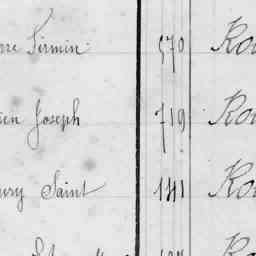 rre Firmin 570 Rou
ien Joseph 719 Rou
ury Saint 1141 Rou